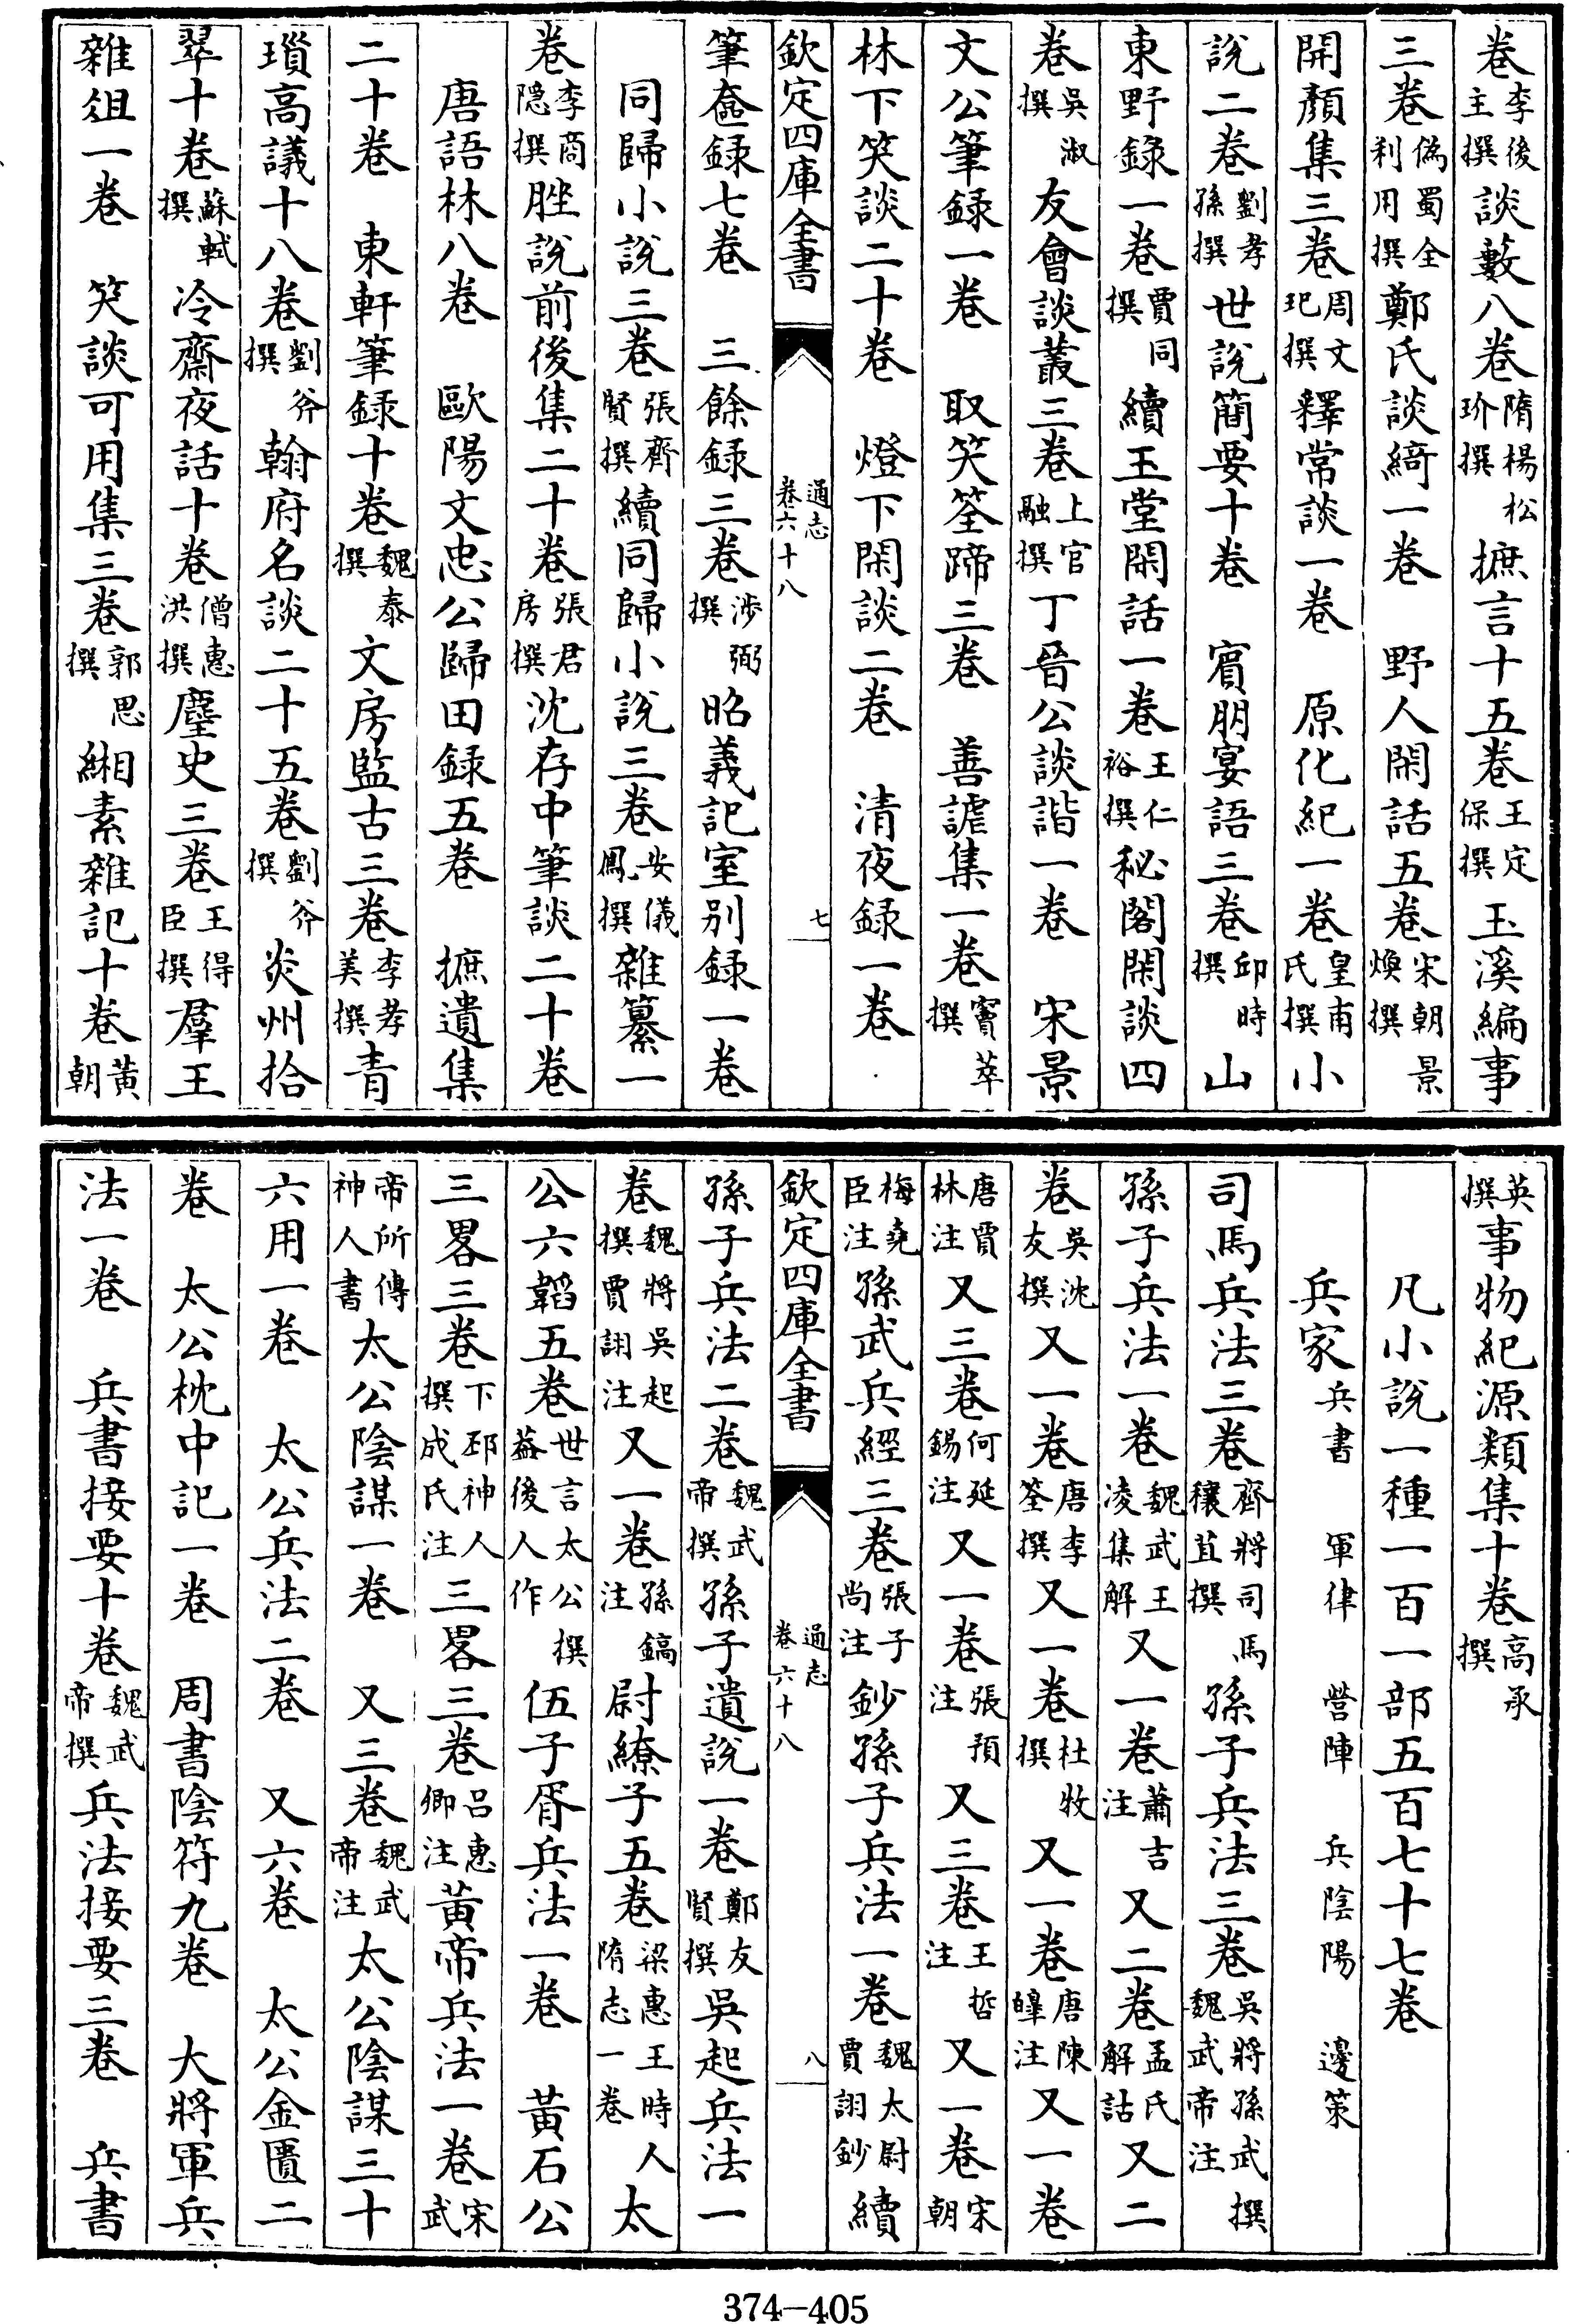 卷李後主撰談藪八卷隋楊松玠撰摭言十五卷王定保撰玉溪編事
三卷偽蜀金利用撰鄭氏談綺一卷 野人閑話五卷宋朝景煥撰
開顏集三卷周文玘撰釋常談一卷 原化紀一卷皇甫氏撰小
說二卷劉孝孫撰世說簡要十卷 賓朋宴語三卷邱時撰山
東野錄一卷賈同撰續玉堂閑話一卷王仁裕撰秘閣閑談四
卷吳淑撰友會談叢三卷上官融撰丁晉公談諧一卷 宋景
文公筆録一卷 取笑筌蹄三卷 善謔集一卷竇苹撰
林下笑談二十卷 燈下閑談二卷 清夜録一卷
欽定四庫全書 通志卷六十八 七
筆奩録七卷 三餘録三卷涉弼撰昭義記室别録一卷
同歸小說三卷張齊賢撰續同歸小說三卷安儀鳳撰雜纂一
卷李商隠撰脞說前後集二十卷張君房撰沈存中筆談二十卷
唐語林八卷 歐陽文忠公歸田録五卷 摭遺集
二十卷 東軒筆録十卷魏泰撰文房監古三卷李孝美撰青
瑣高議十八卷劉斧撰翰府名談二十五卷劉斧撰炎州拾
翠十卷蘇軾撰冷齋夜話十卷僧惠洪撰麈史三卷王得臣撰羣玉
雜俎一卷 笑談可用集三卷郭思撰緗素雜記十卷黃朝
英撰事物紀源類集十卷高承撰
凡小說一種一百一部五百七十七卷
兵家兵書 軍律 營陣 兵陰陽 邊策
司馬兵法三卷齊將司馬穰苴撰孫子兵法三卷吳將孫武撰魏武帝注
孫子兵法一卷魏武王凌集解又一卷蕭吉注又二卷孟氏解詁又二
卷吳沈友撰又一卷唐李筌撰又一卷杜牧撰又一卷唐陳皥注又一卷
唐賈林注又三卷何延錫注又一卷張預注又三卷王晳注又一卷宋朝
梅堯臣注孫武兵經三卷張子尚注鈔孫子兵法一卷魏太尉賈詡鈔續
欽定四庫全書 通志卷六十八 八
孫子兵法二卷魏武帝撰孫子遺說一卷鄭友賢撰吳起兵法一
卷魏將吳起撰賈詡注又一卷孫鎬注尉繚子五卷梁惠王時人隋志一卷太
公六韜五卷世言太公撰葢後人作伍子胥兵法一卷 黃石公
三畧三卷下邳神人撰成氏注三畧三卷吕惠卿注黃帝兵法一卷宋武
帝所傳神人書太公陰謀一卷 又三卷魏武帝注太公陰謀三十
六用一卷 太公兵法二卷 又六卷 太公金匱二
卷 太公枕中記一卷 周書陰符九卷 大將軍兵
法一卷 兵書接要十卷魏武帝撰兵法接要三卷 兵書
374-405